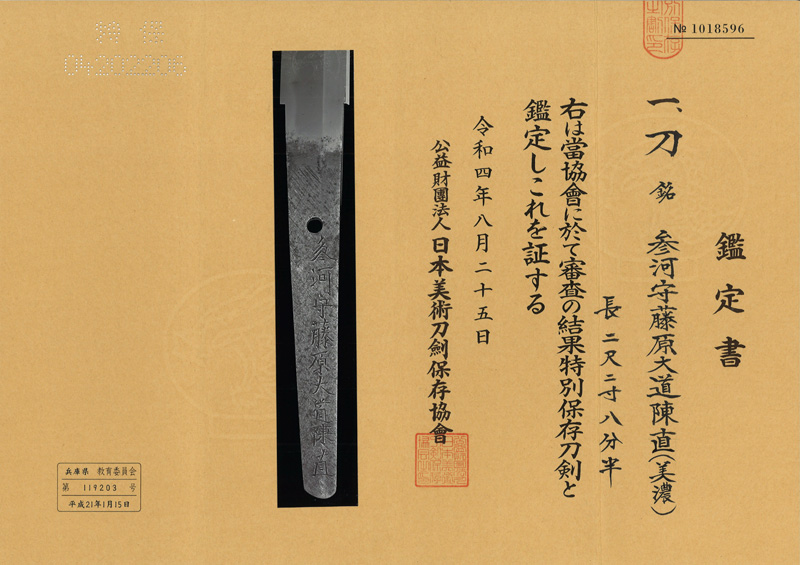 № 1018596
鑑定書
一、刀 銘 参河守藤原大道陳直(美濃)
長 二尺二寸八分半
右は當協會に於て審査の結果特別保存刀剣と
鑑定しこれを証する
令和四年八月二十五日
公益財團法人日本美術刀劍保存協會
河守藤原大道陳直
特保
兵庫県 教育委員会
第 119203 号
平成21年1月15日